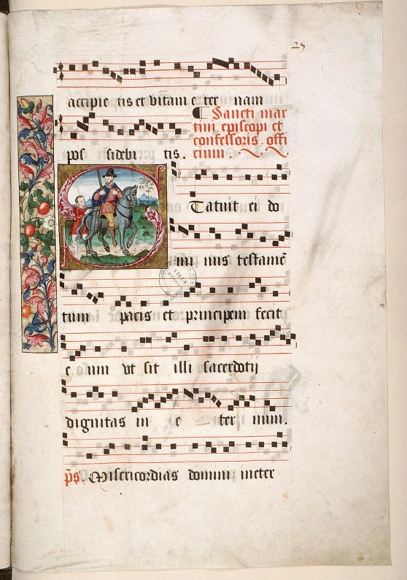 25
accipie tis et vitam e ter nam
¶ Sancti mar
tini episcopi et
confessoris. offi
cium
pos sidebi tis.
Tatuit ei do
mi nus testamē
tum pacis et principem fecit
e um vt sit illi sacerdotij
dignitas in e ter num.
p̄s. Misericordias domini ineter